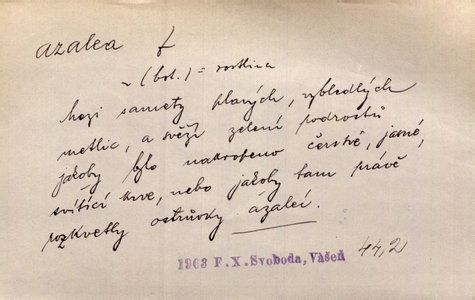 azalea f
~ (bot.) = rostlina
mezi samety planých, vybledlých
metlic, a svěží zelení podrostů
jakoby bylo nakropeno čerstvě, jasné,
svítící krve, nebo jakoby tam právě
rozkvetly ostrůvky ázaleí.
1963 F.X.Svoboda, Vášeň 44,2